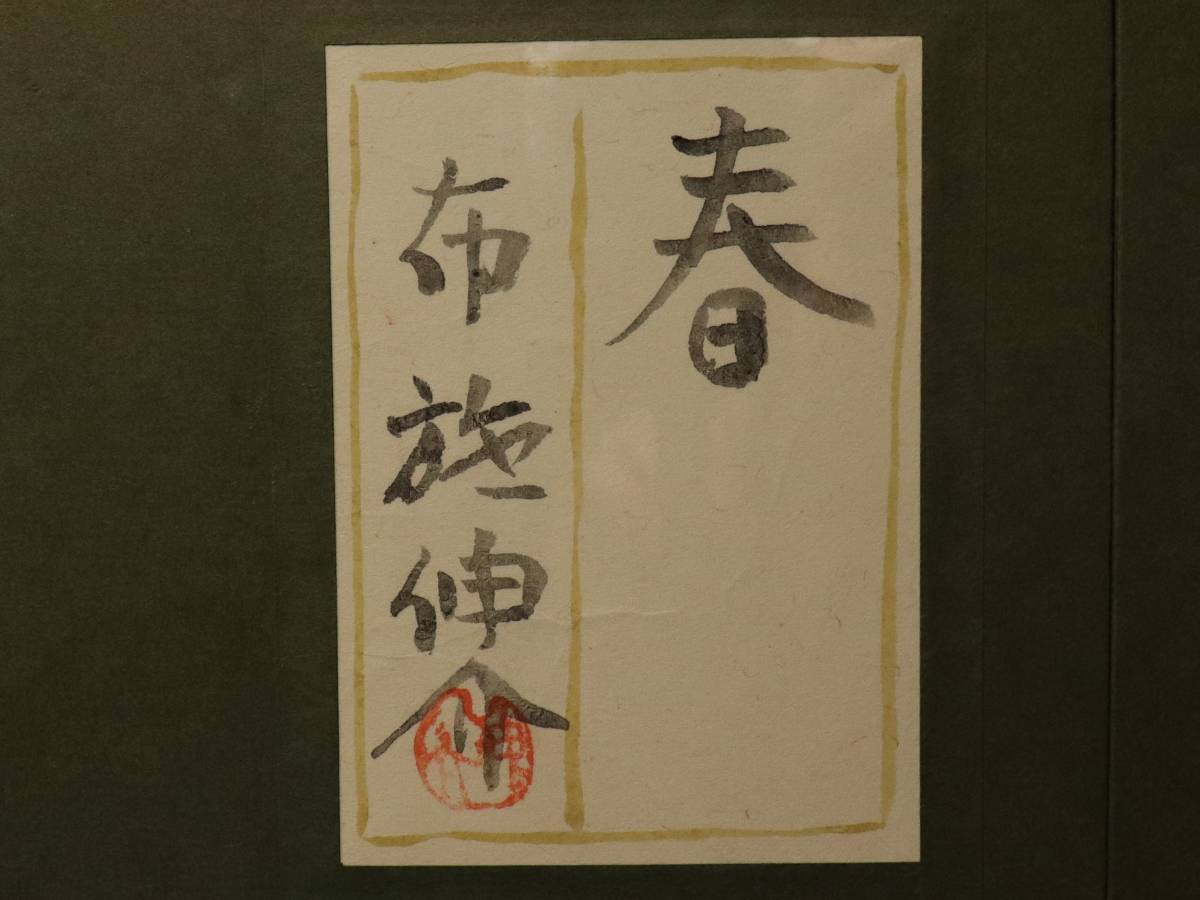 春
布施伸介